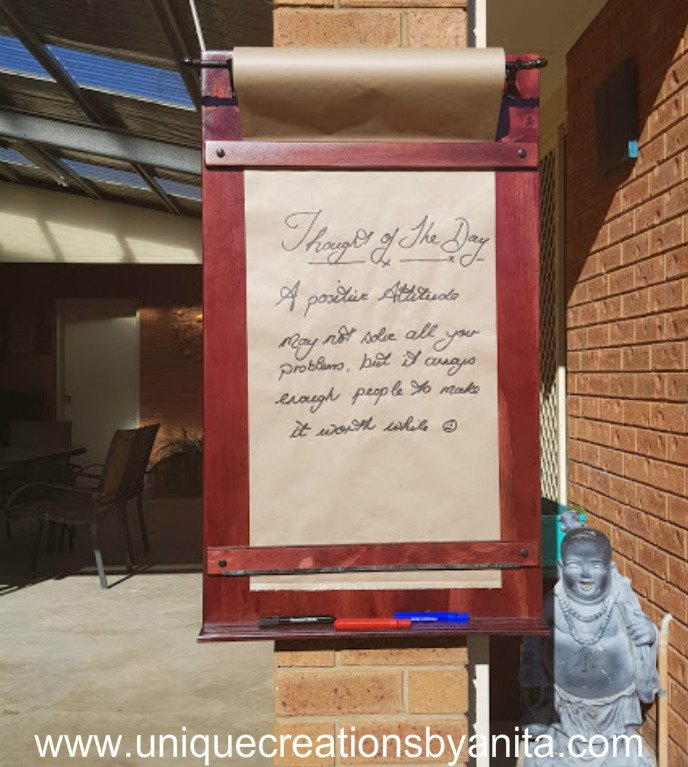 Thought of The Day
A positive Attitude
may not solve all your
problems, but it annoys
enough people to make
it worth while ☺
www.uniquecreationsbyanita.com